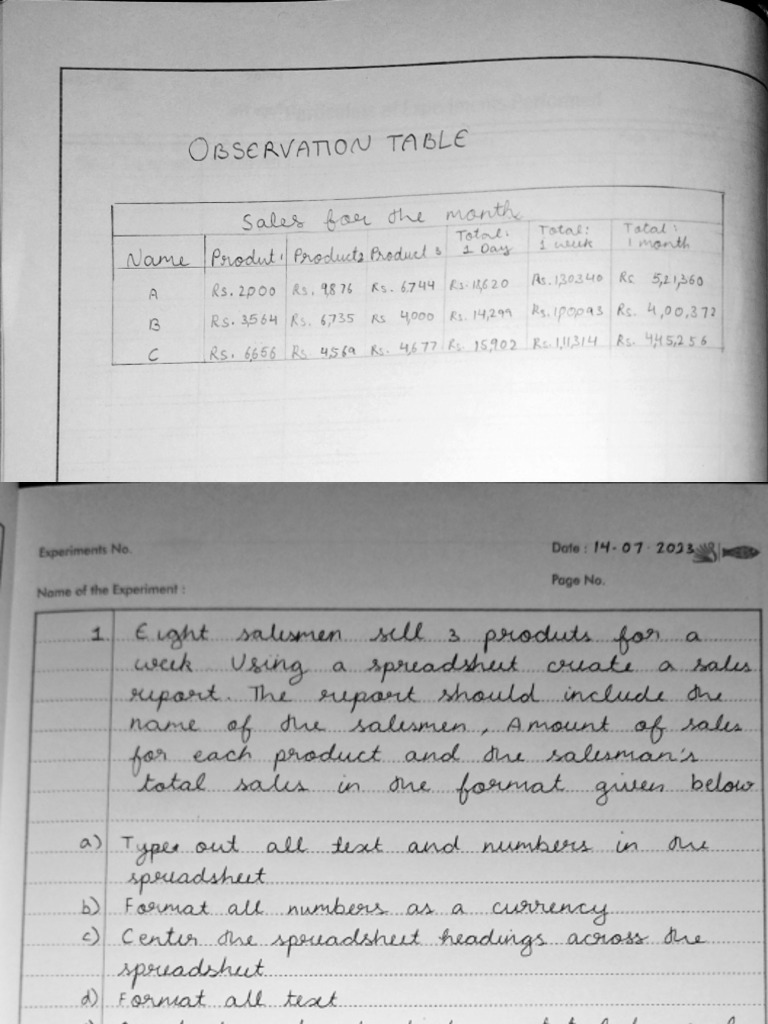 OBSERVATION TABLE
Sales for the month
Name Produt 1 Product2 Product 3 Total: 1 Day Total: 1 week Total: 1 month
A Rs. 2,000 Rs. 9,876 Rs. 6,744 Rs. 18,620 Rs. 1,30,340 Rs 5,21,360
B Rs. 3,564 Rs. 6,735 Rs 4,000 Rs. 14,299 Rs. 1,00,093 Rs. 4,00,372
C Rs. 6,656 Rs 4,569 Rs. 4,677 Rs. 15,902 Rs. 1,11,314 Rs. 4,45,256
Experiments No.
Date : 14-07-2023
Name of the Experiment :
Page No.
1. Eight salesmen sell 3 produts for a
week Using a spreadsheet create a sales
report. The report should include the
name of the salesmen, Amount of sales
for each product and the salesman's
total sales in the format given below
a) Type out all text and numbers in the
spreadsheet
b) Format all numbers as a currency
c) Center the spreadsheet headings across the
spreadsheet
d) Format all text